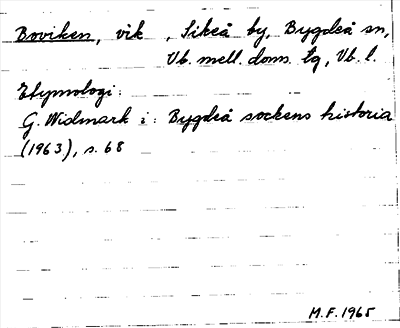 Boviken, vik , Sikeå by, Bygdeå sn,
Vb. mell. doms. tg, Vb. l.
Etymologi:
G. Widmark i: Bygdeå sockens historia
(1963), s. 68
M.F. 1965